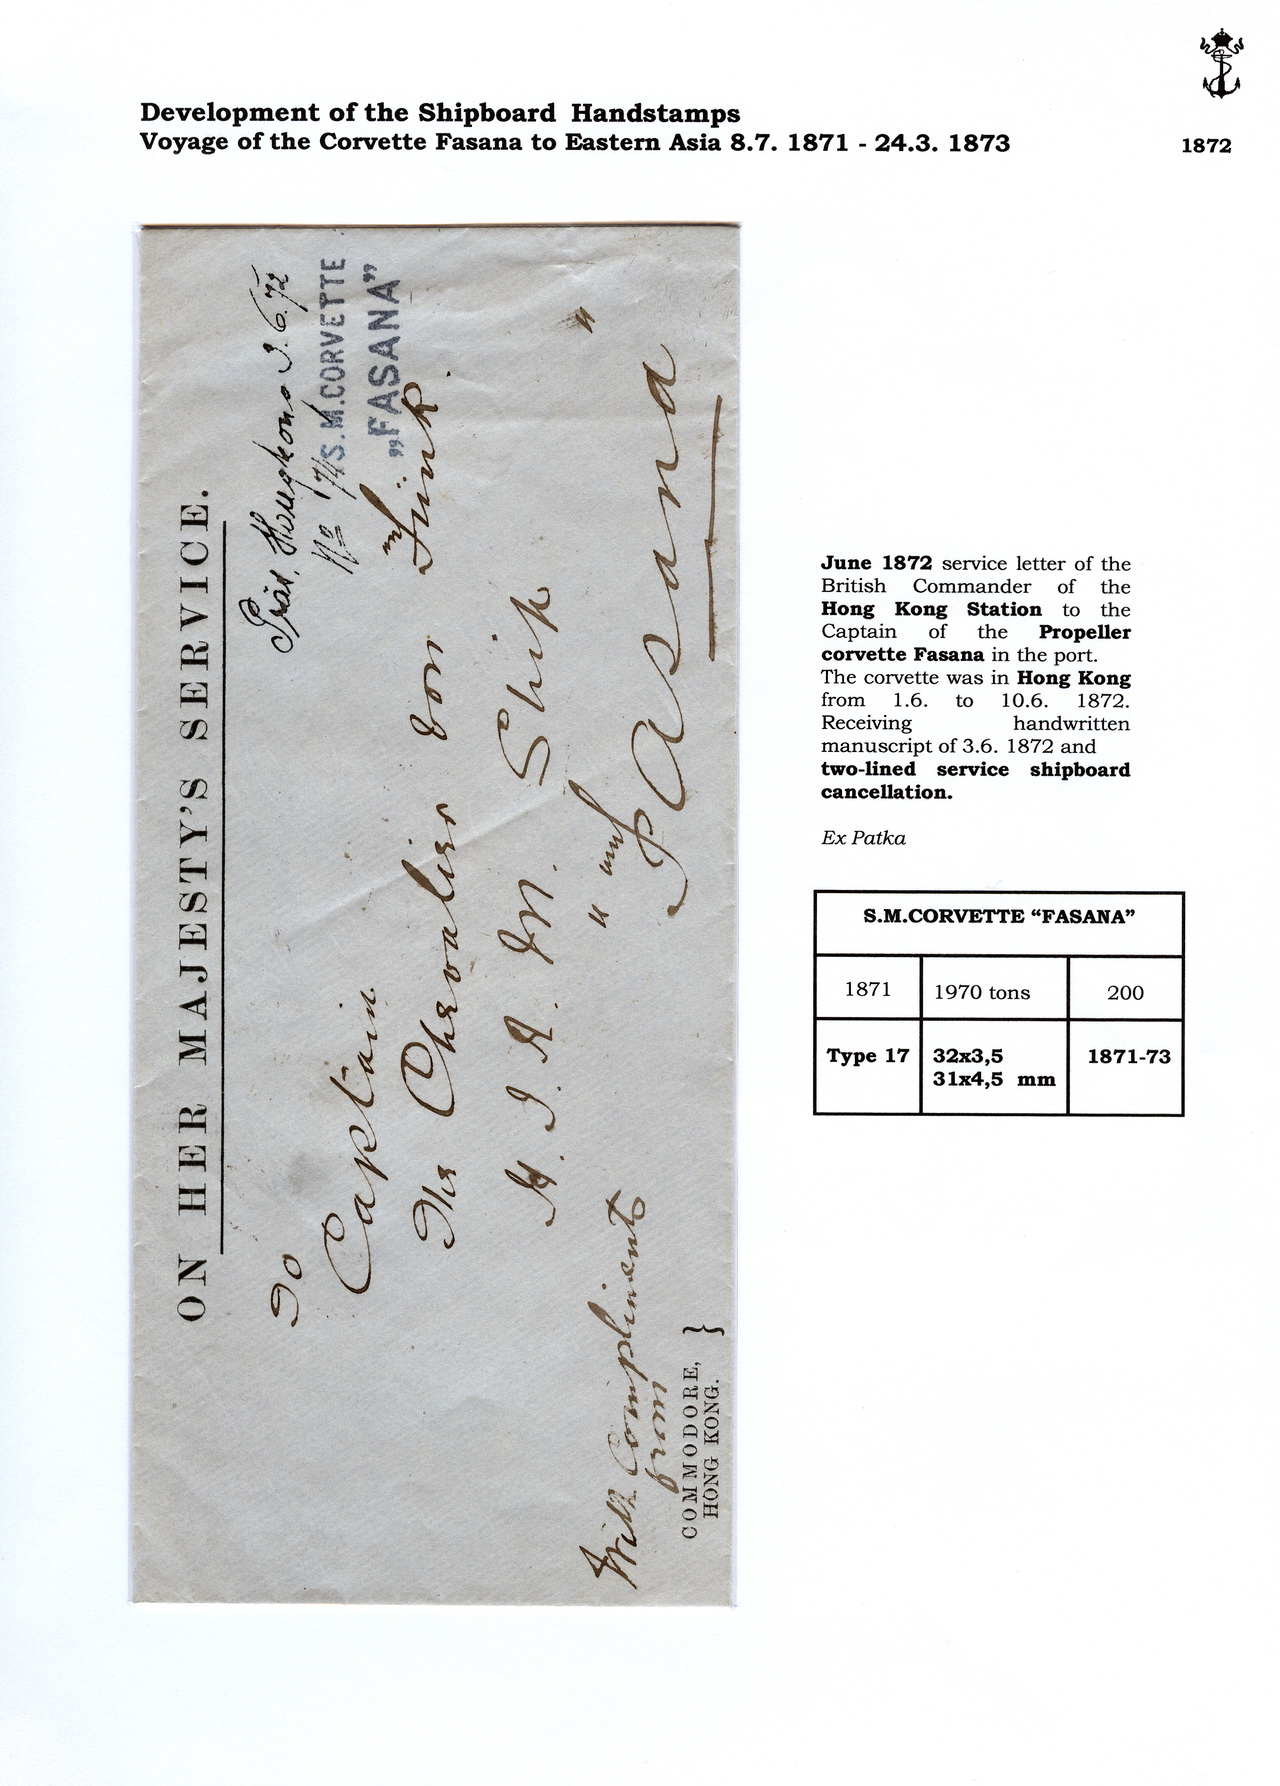 Development of the Shipboard Handstamps
Voyage of the Corvette Fasana to Eastern Asia 8.7. 1871 - 24.3. 1873
1872
ON HER MAJESTY'S SERVICE.
Präs. Hongkong 3.6.72
No 74
S.M.CORVETTE
„FASANA”
To
Captain
The Chevalier von Funk
H. I. R. M. Ship
" Fasana "
With Compliments
from
COMMODORE,
HONG KONG. }
June 1872 service letter of the
British Commander of the
Hong Kong Station to the
Captain of the Propeller
corvette Fasana in the port.
The corvette was in Hong Kong
from 1.6. to 10.6. 1872.
Receiving handwritten
manuscript of 3.6. 1872 and
two-lined service shipboard
cancellation.
Ex Patka
S.M.CORVETTE “FASANA”
1871 1970 tons 200
Type 17 32x3,5 1871-73
31x4,5 mm